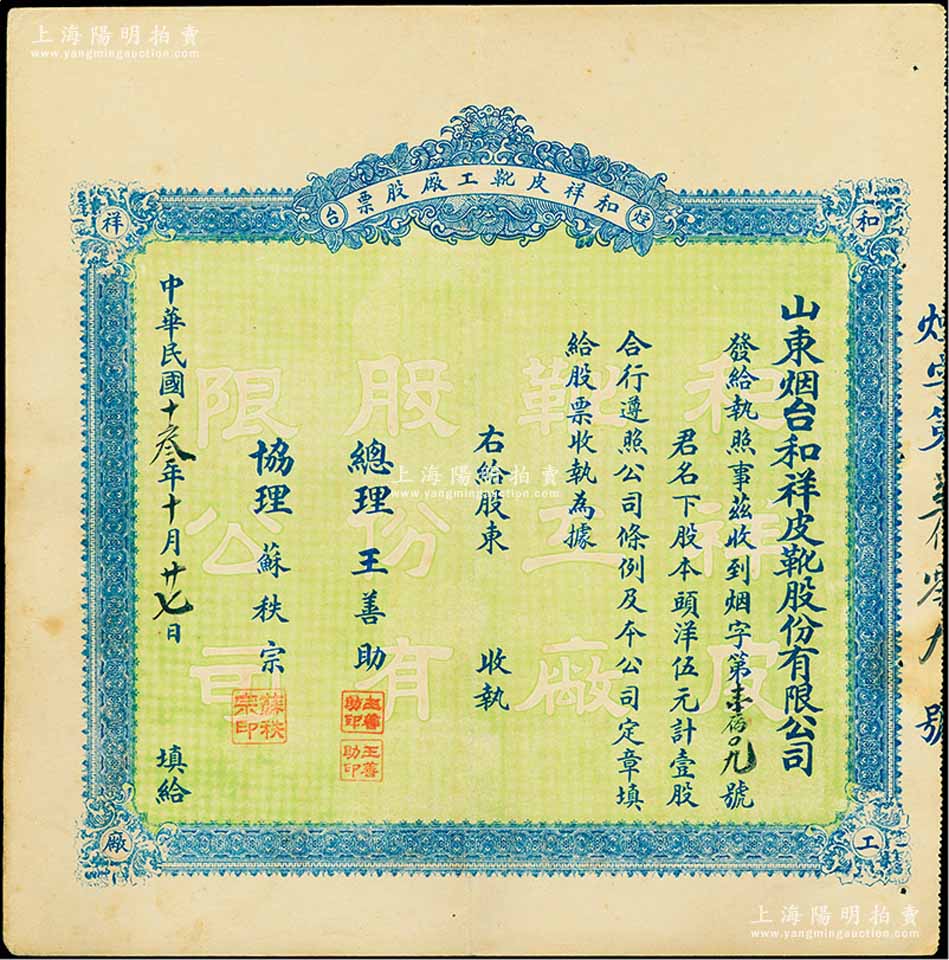 上海陽明拍賣
www.yangmingauction.com
烟台和祥皮靴工廠股票
和
祥
工
廠
山東烟台和祥皮靴股份有限公司
發給執照事茲收到烟字第壹佰〇九號
君名下股本頭洋伍元計壹股
合行遵照公司條例及本公司定章填
給股票收執為據
右給股東 收執
總理 王善助
王善助印
王善助印
協理 蘇秩宗
蘇秩宗印
中華民國十叁年十月廿七日 填給
和祥皮
靴工廠
股份有
限公司
號
上海陽明拍賣
www.yangmingauction.com
上海陽明拍賣
www.yangmingauction.com